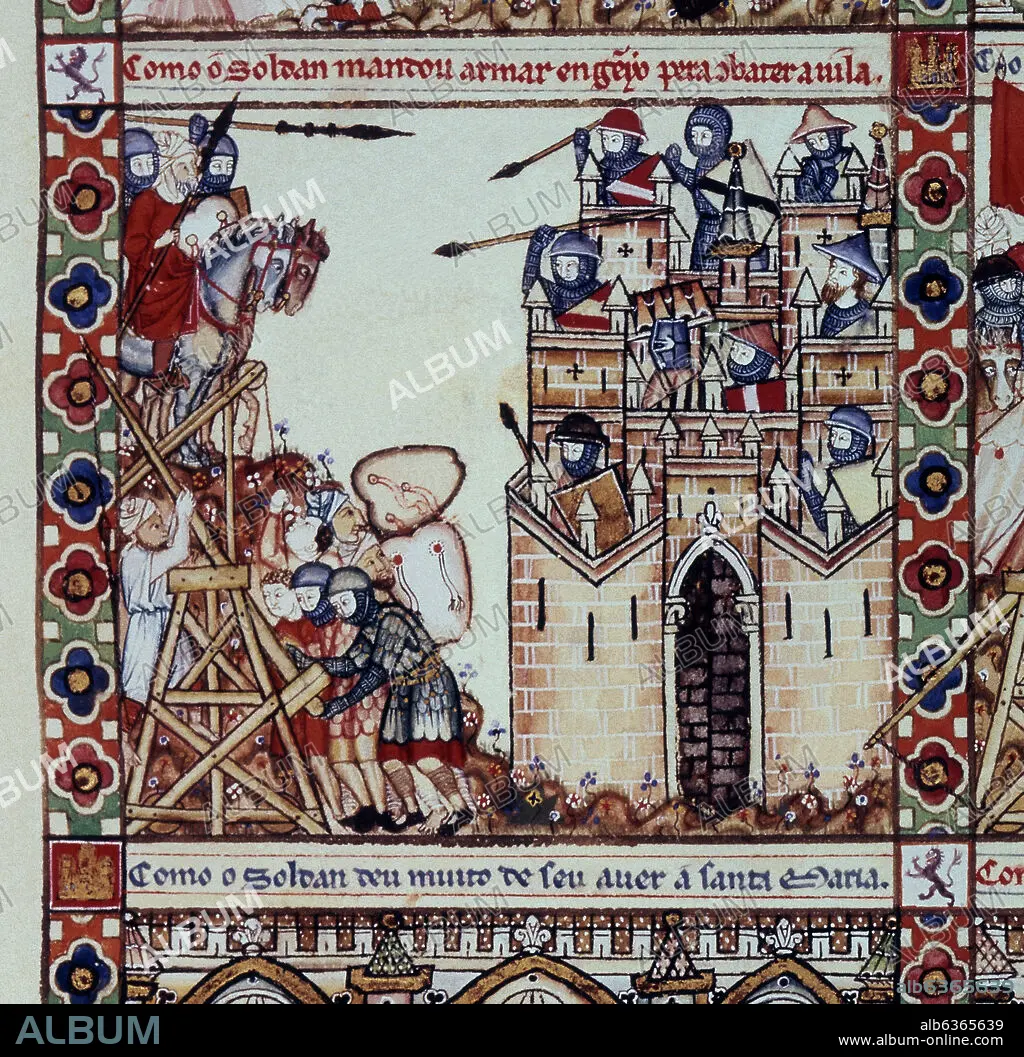 Como o Soldan mandou armar engẽyo pera ꝯbater a uila.
Como o Soldan deu muito de seu auer a santa Maria.
ALBUM
ALBUM
alb6365639
alb6365639
www.album-online.com